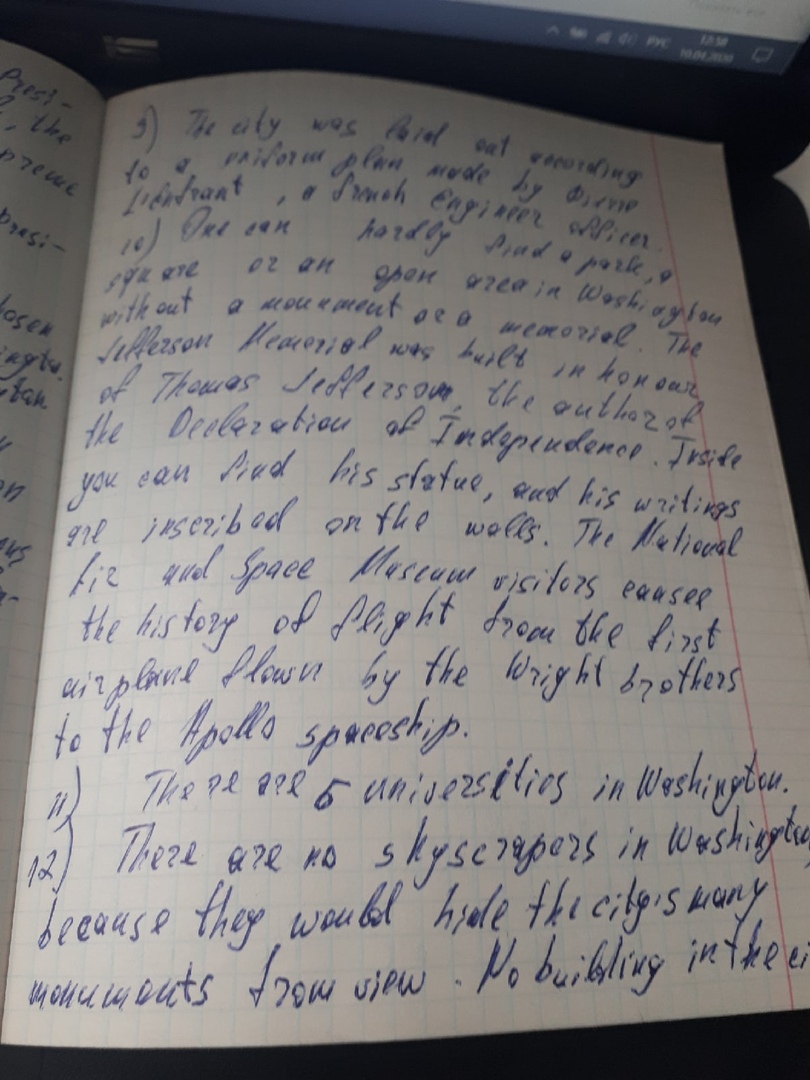 Presi-
, the
preme
Presi-
hosen
9) The city was laid out according
to a uniform plan made by Pierre
L'enfrant, a french Engineer officer.
10) One can hardly find a park, a
square or an open area in Washington
without a monument or a memorial. The
Jefferson Memorial was built in honour
of Thomas Jefferson, the author of
the Declaration of Independence. Inside
you can find his statue, and his writings
are inscribed on the walls. The National
Air and Space Museum visitors causes
the history of flight from the first
airplane flown by the Wright brothers
to the Apollo spaceship.
11) There are 5 universities in Washington.
12) There are no skyscrapers in Washington
because they would hide the city's many
monuments from view. No building in the ci
РУС
12:58
10.04.2020